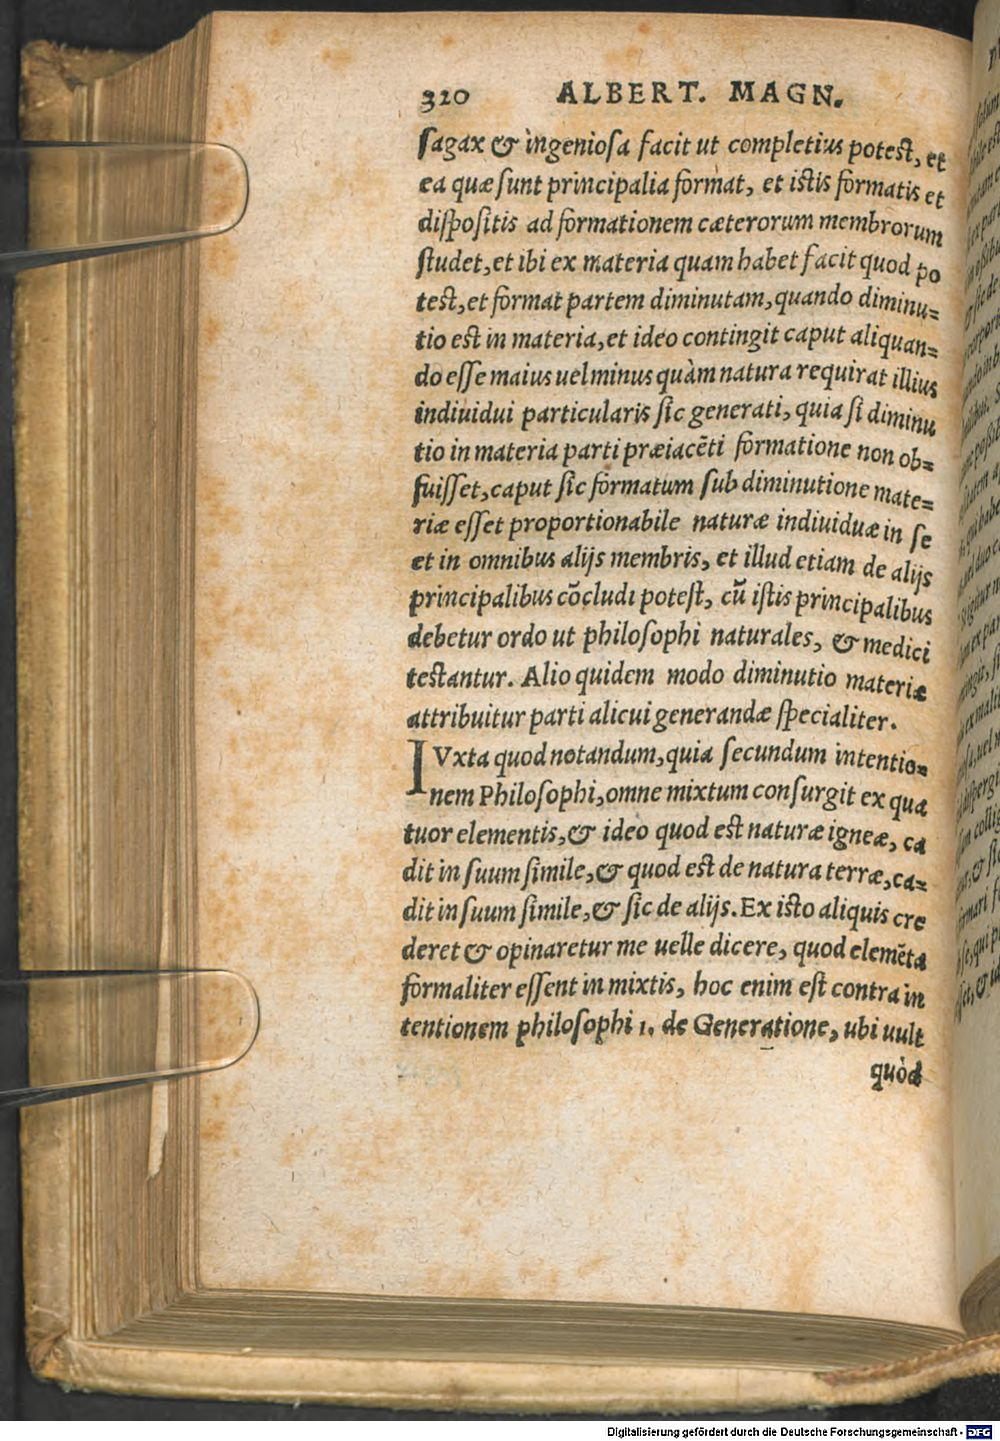 320 ALBERT. MAGN.
ſagax & ingenioſa facit ut completius poteſt, et
ea quæ ſunt principalia format, et iſtis formatis et
diſpoſitis ad formationem cæterorum membrorum
ſtudet, et ibi ex materia quam habet facit quod po
teſt, et format partem diminutam, quando diminu=
tio eſt in materia, et ideo contingit caput aliquan=
do eſſe maius uel minus quàm natura requirat illius
indiuidui particularis ſic generati, quia ſi diminu
tio in materia parti præiacēti formatione non ob=
fuiſſet, caput ſic formatum ſub diminutione mate=
riæ eſſet proportionabile naturæ indiuiduæ in ſe
et in omnibus alijs membris, et illud etiam de alijs
principalibus cōcludi poteſt, cū iſtis principalibus
debetur ordo ut philoſophi naturales, & medici
teſtantur. Alio quidem modo diminutio materiæ
attribuitur parti alicui generandæ ſpecialiter.
IVxta quod notandum, quia ſecundum intentio=
nem Philoſophi, omne mixtum conſurgit ex qua
tuor elementis, & ideo quod eſt naturæ igneæ, ca
dit in ſuum ſimile, & quod eſt de natura terræ, ca=
dit in ſuum ſimile, & ſic de alijs. Ex iſto aliquis cre
deret & opinaretur me uelle dicere, quod elemēta
formaliter eſſent in mixtis, hoc enim eſt contra in
tentionem philoſophi 1. de Generatione, ubi uult
quòd
Digitalisierung gefördert durch die Deutsche Forschungsgemeinschaft - DFG